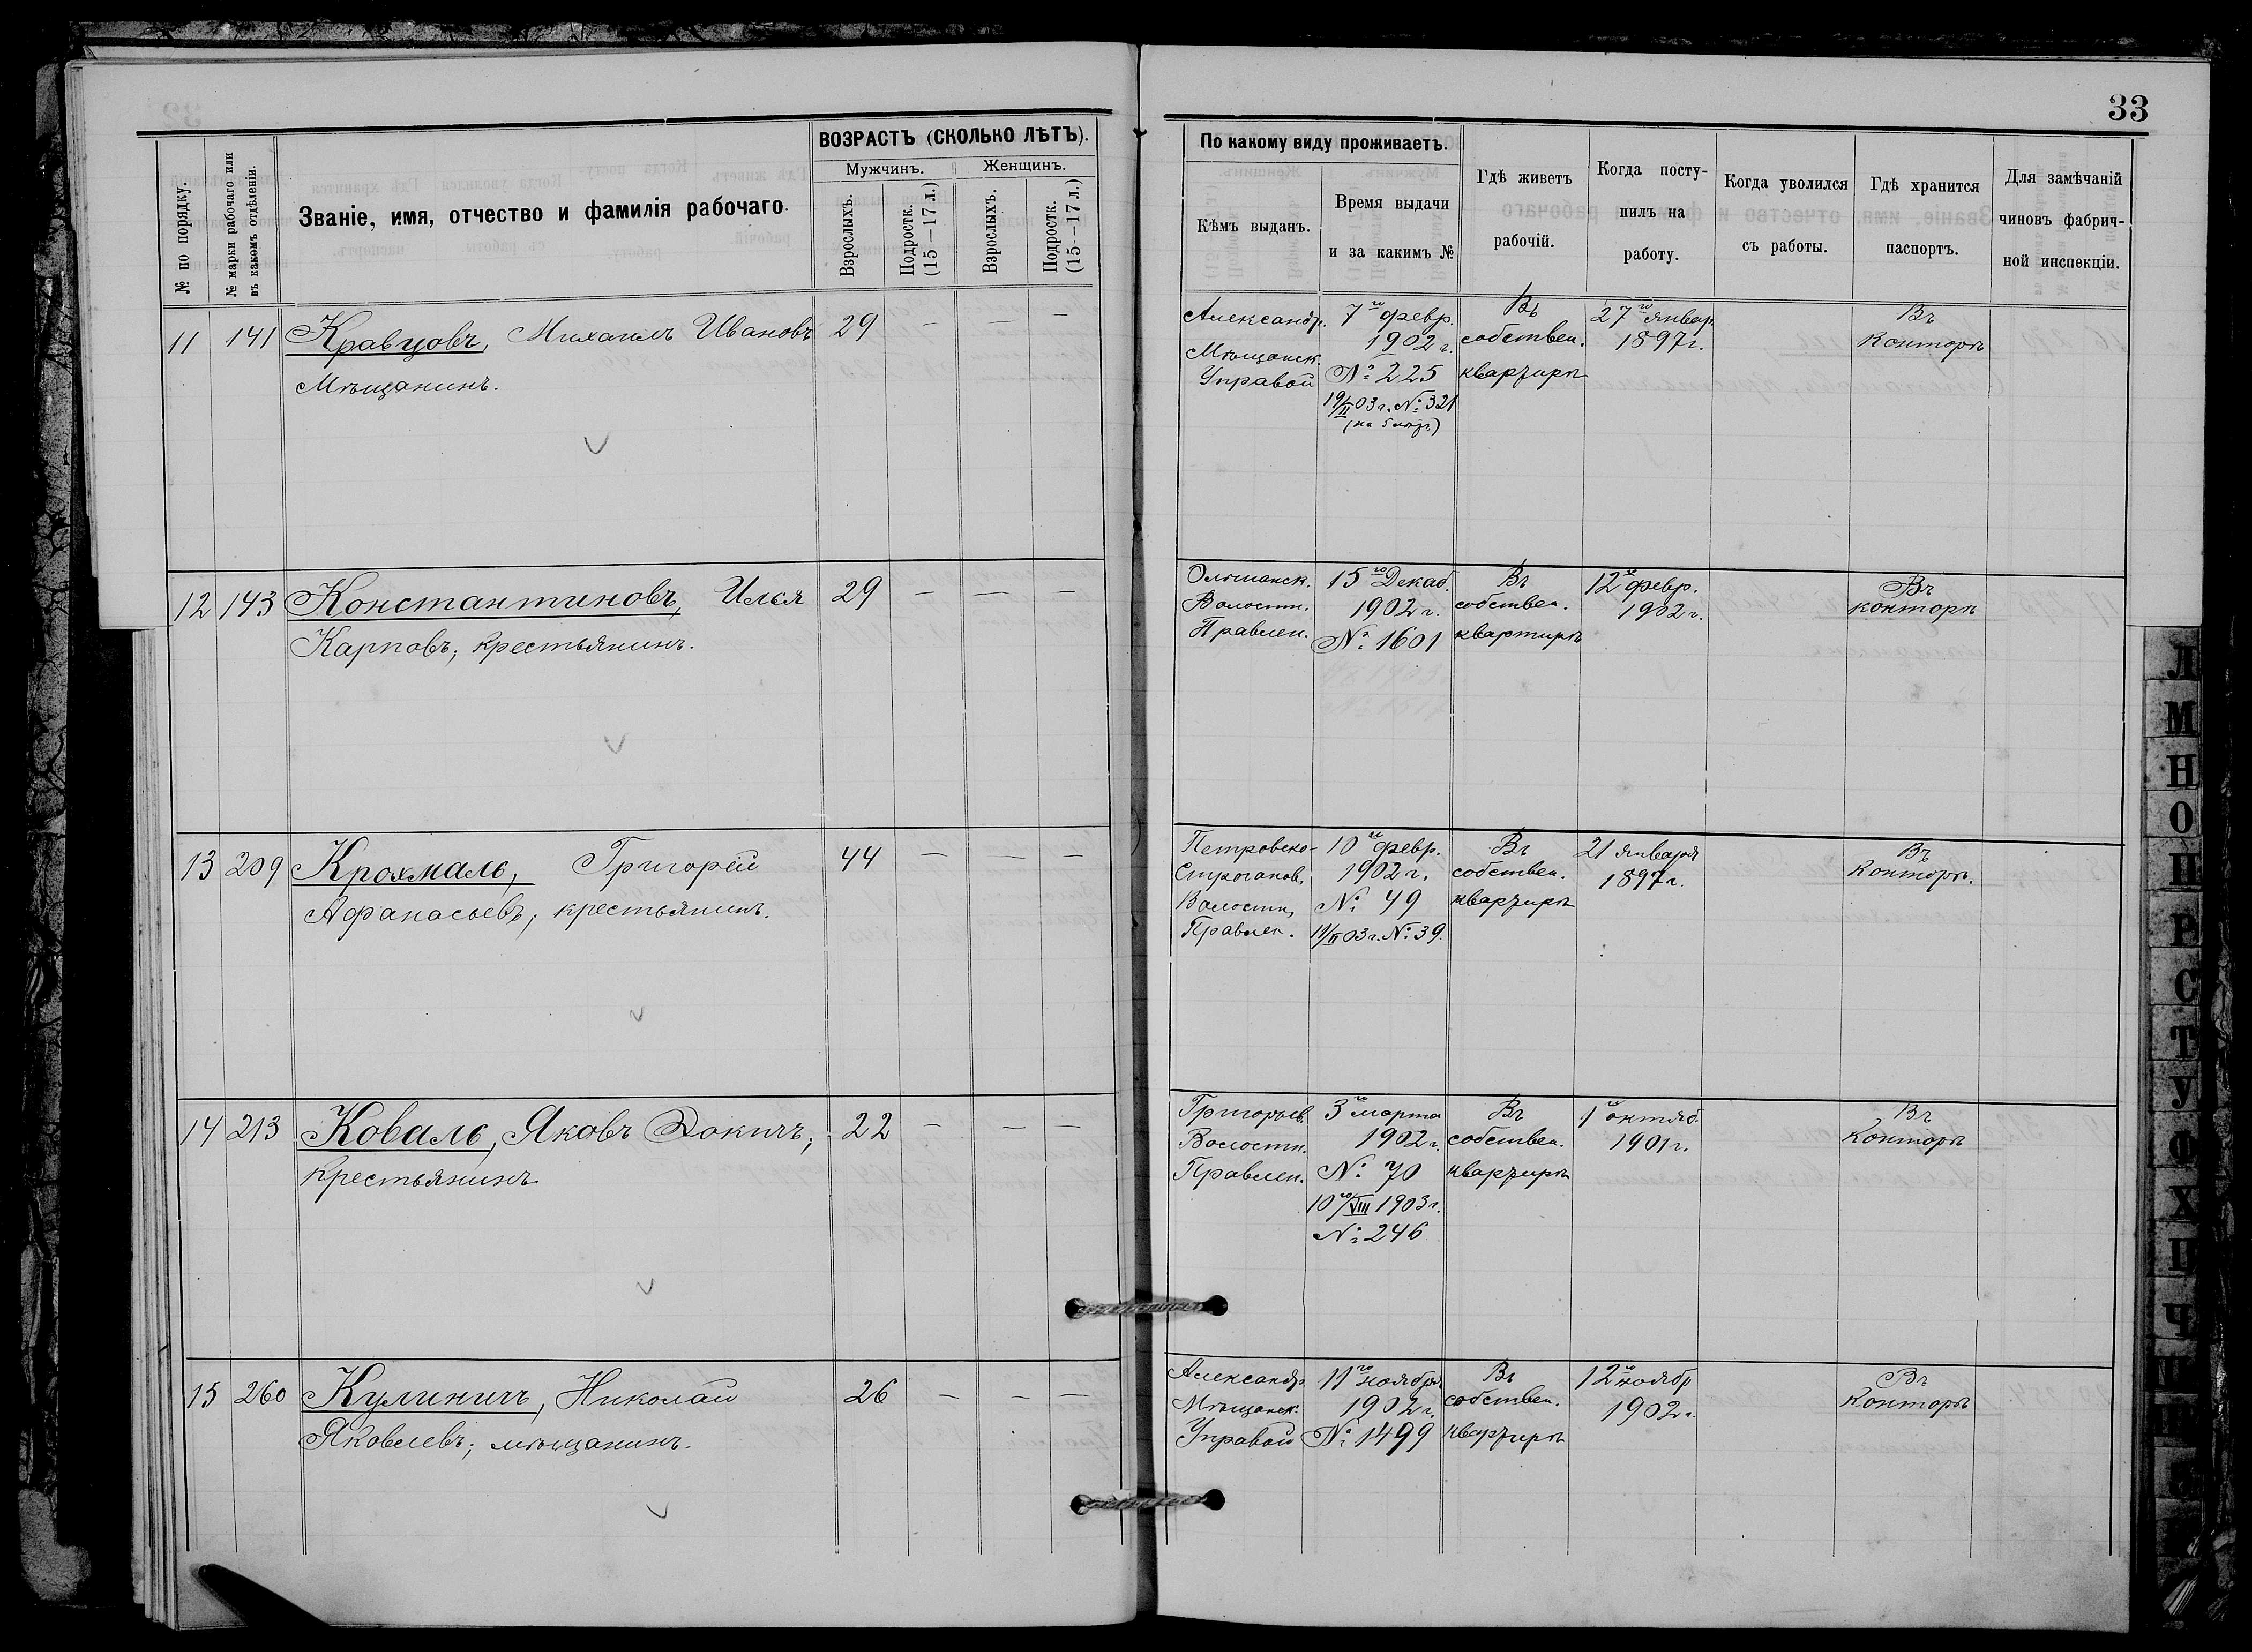 33
ВОЗРАСТЪ (СКОЛЬКО ЛѢТЪ).
По какому виду проживаетъ.
№ по порядку.
№ марки рабочаго или
въ какомъ отдѣленіи.
Званіе, имя, отчество и фамилія рабочаго.
Мужчинъ.
Женщинъ.
Взрослыхъ.
Подростк.
(15–17 л.)
Взрослыхъ.
Подростк.
(15–17 л.)
Кѣмъ выданъ.
Время выдачи
и за какимъ №
Гдѣ живетъ
рабочій.
Когда посту-
пилъ на
работу.
Когда уволился
съ работы.
Гдѣ хранится
паспортъ.
Для замѣчаній
чиновъ фабрич-
ной инспекціи.
11 141 Кравцовъ, Михаилъ Ивановъ 29 — — —
Мѣщанинъ.
Александр.
Мѣщанск.
Управой
7го февр.
1902 г.
№ 225
19/II 03 г. № 321
Въ
собствен.
квартирѣ
27го январ.
1897 г.
Въ
Конторѣ
12 143 Константиновъ, Илья 29 — — —
Карповъ; крестьянинъ.
Ольшанск.
Волостн.
Правлен.
15го Декаб.
1902 г.
№ 1601
Въ
собствен.
квартирѣ
12го февр.
1902 г.
Въ
конторѣ
13 209 Крохмаль, Григорій 44 — — —
Афанасьевъ; крестьянинъ.
Петровско-
Строганов.
Волостн.
Правлен.
10го февр.
1902 г.
№ 49
11/II 03 г. № 39.
Въ
собствен.
квартирѣ
21 января
1897 г.
Въ
Конторѣ.
14 213 Коваль, Яковъ Докичъ; 22 — — —
крестьянинъ
Григорьев.
Волостн.
Правлен.
3го марта
1902 г.
№ 70
10го/VIII 1903 г.
№ 246
Въ
собствен.
квартирѣ
1го октяб.
1901 г.
Въ
Конторѣ
15 260 Кулиничъ, Николай 26 — — —
Яковлевъ; мѣщанинъ.
Александр.
Мѣщанск.
Управой
11го ноября
1902 г.
№ 1499
Въ
собствен.
квартирѣ
12го ноябр
1902 г.
Въ
Конторѣ
Л
М
Н
О
П
Р
С
Т
У
Ф
Х
Ц
Ч